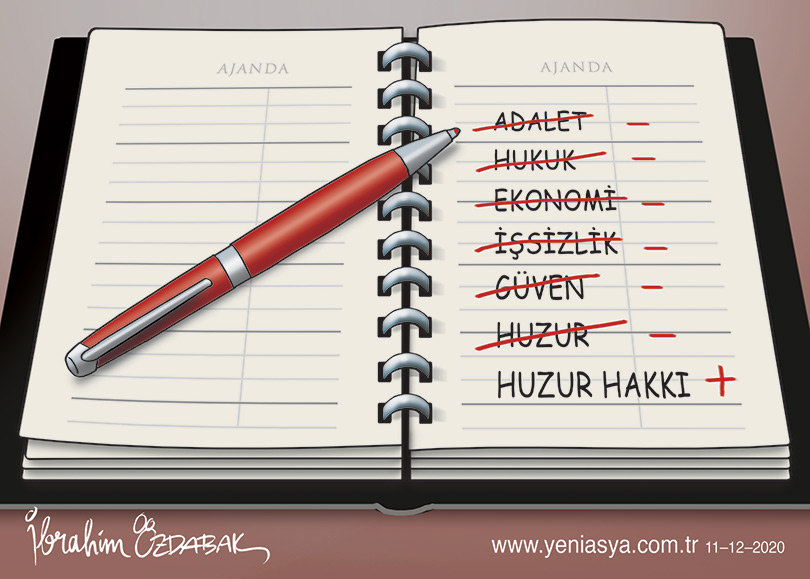 AJANDA
AJANDA
ADALET –
HUKUK –
EKONOMİ –
İŞSİZLİK –
GÜVEN –
HUZUR –
HUZUR HAKKI +
İbrahim ÖZDABAK
www.yeniasya.com.tr 11–12–2020